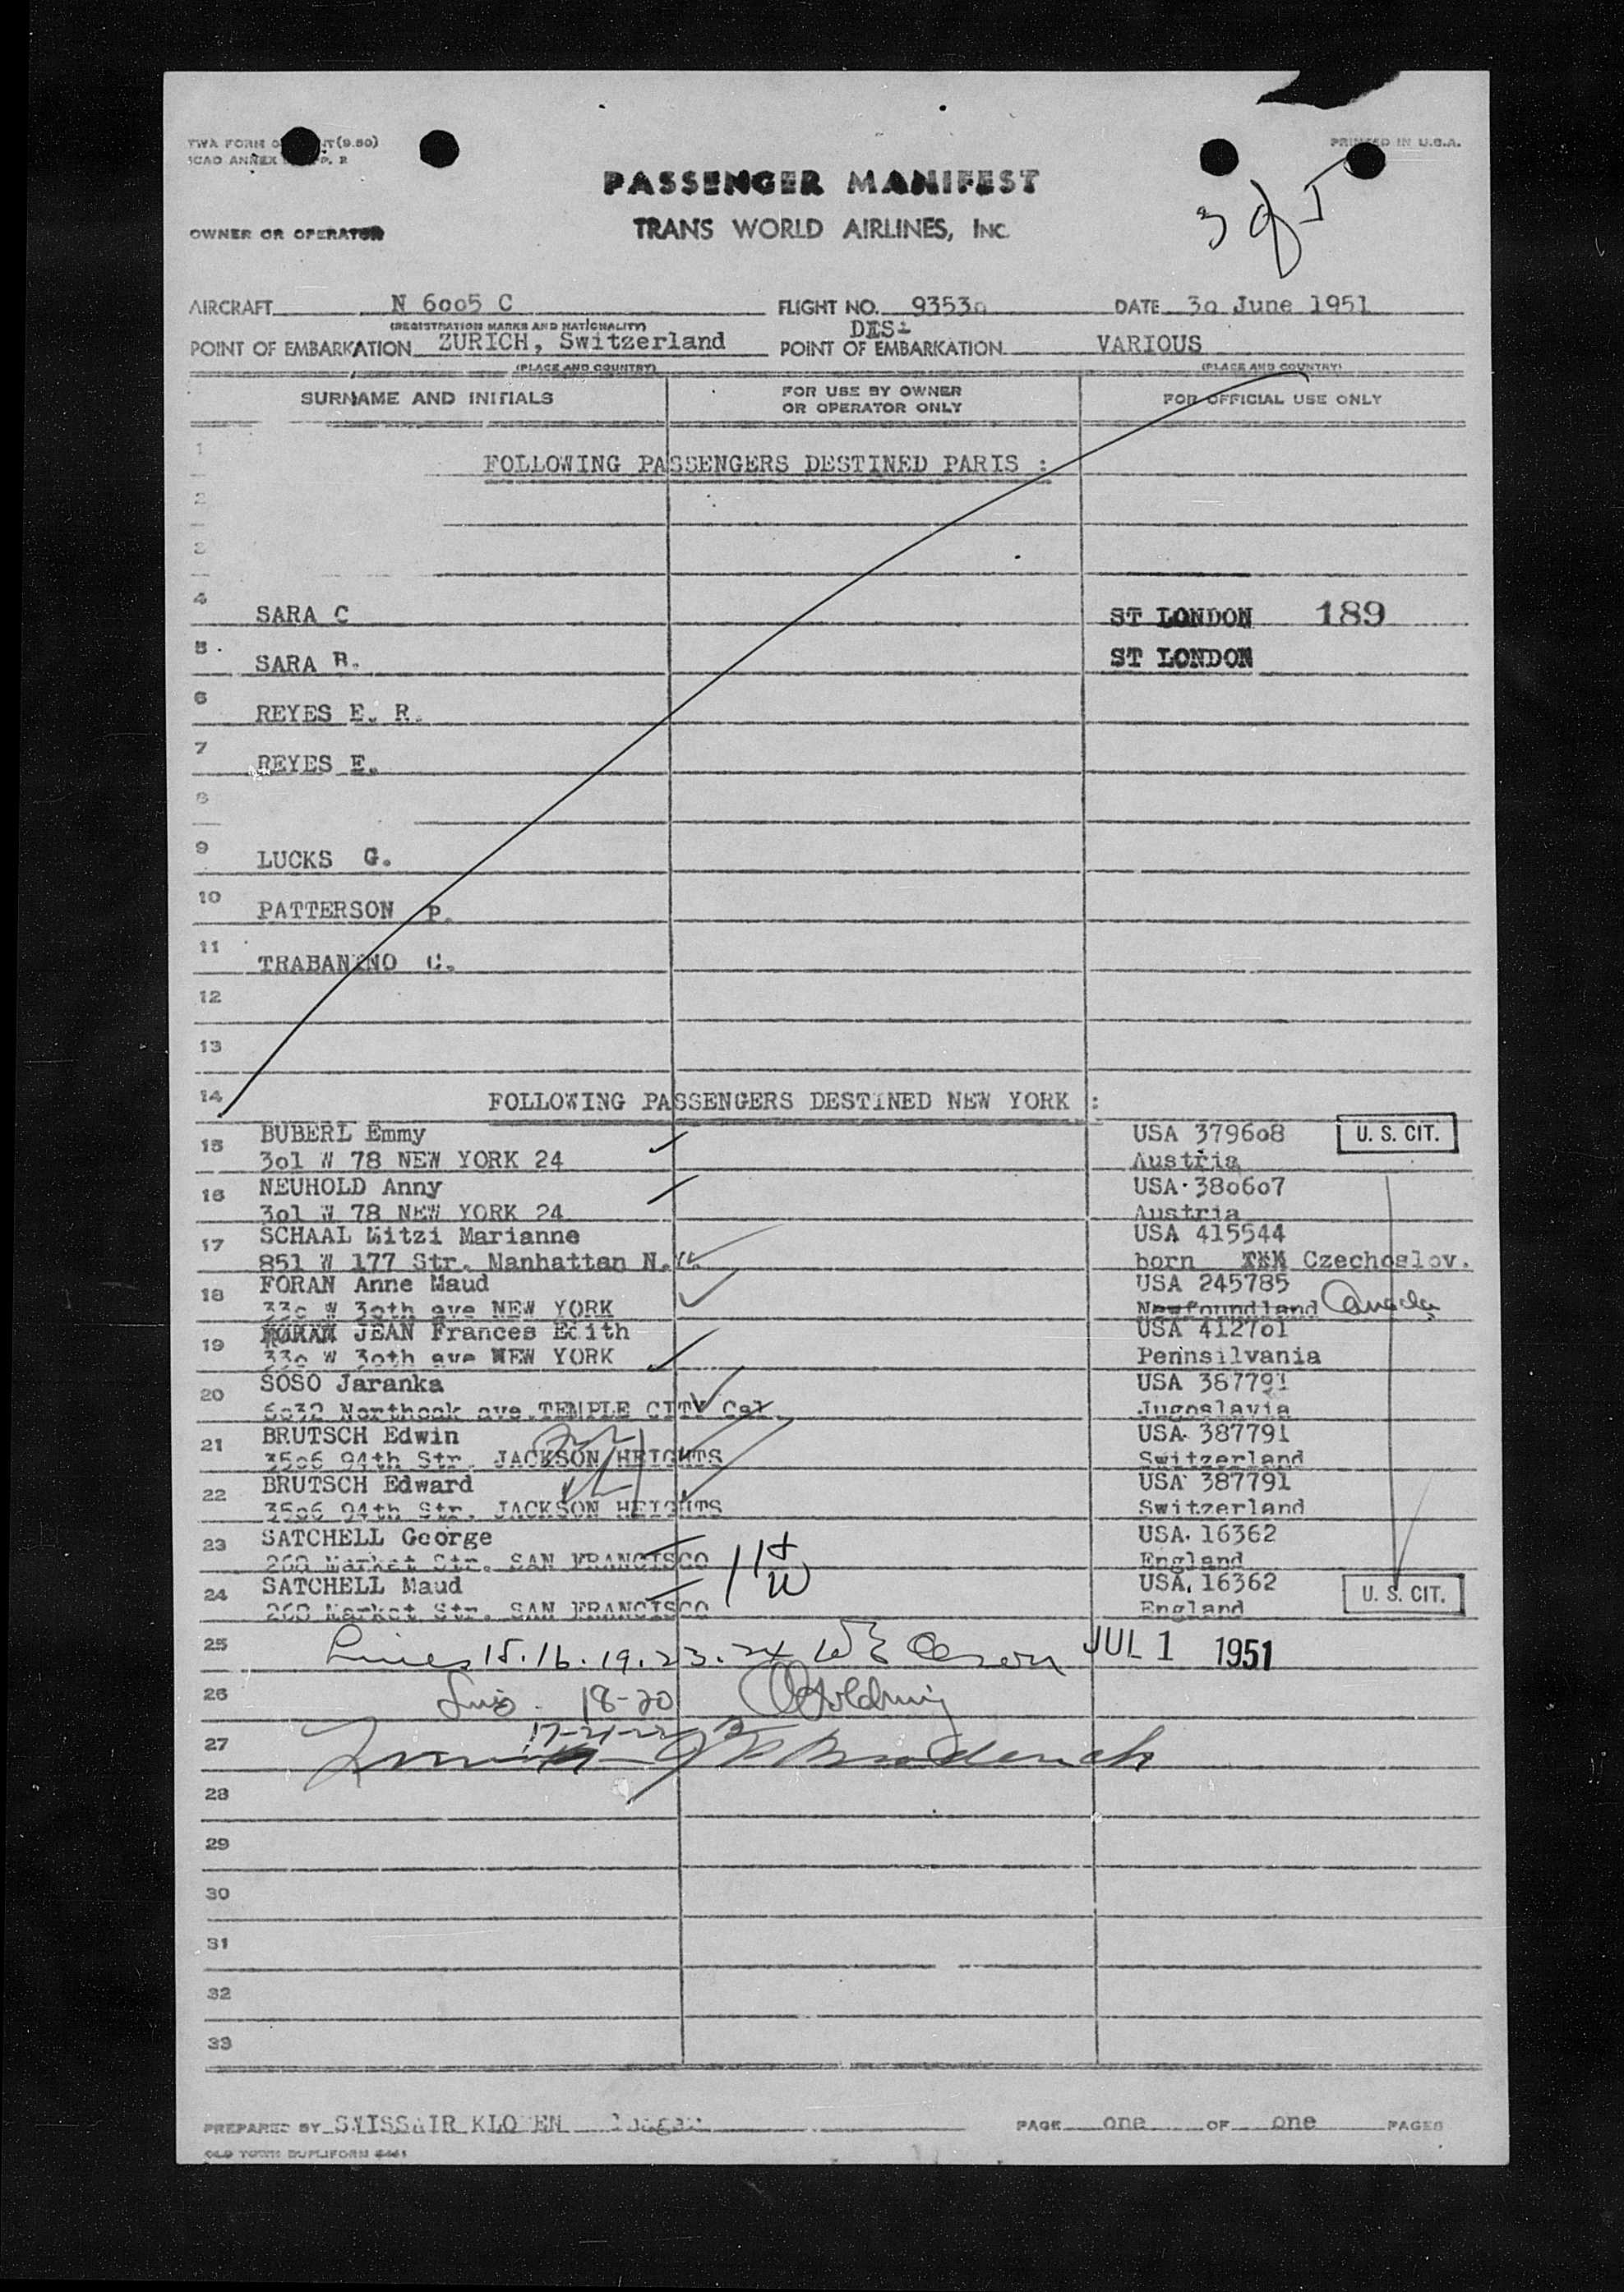 TWA FORM O NT(9.50)
ICAO ANNEX P. 2
PRINTED IN U.S.A.
PASSENGER MANIFEST
3 of 5
OWNER OR OPERATOR
TRANS WORLD AIRLINES, INC
AIRCRAFT N 6005 C FLIGHT NO. 93530 DATE 30 June 1951
(REGISTRATION MARKS AND NATIONALITY) DIS-
POINT OF EMBARKATION ZURICH, Switzerland POINT OF EMBARKATION VARIOUS
(PLACE AND COUNTRY) (PLACE AND COUNTRY)
SURNAME AND INITIALS FOR USE BY OWNER OR OPERATOR ONLY FOR OFFICIAL USE ONLY
1 FOLLOWING PASSENGERS DESTINED PARIS :
2
3
4 SARA C ST LONDON 189
5 SARA B. ST LONDON
6 REYES E. R.
7 REYES E.
8
9 LUCKS G.
10 PATTERSON P.
11 TRABANINO C.
12
13
14 FOLLOWING PASSENGERS DESTINED NEW YORK :
15 BUBERL Emmy USA 379608 U. S. CIT.
301 W 78 NEW YORK 24 Austria
16 NEUHOLD Anny USA 380607
301 W 78 NEW YORK 24 Austria
17 SCHAAL Mitzi Marianne USA 415544
851 W 177 Str. Manhattan N.Y. born Czechoslov.
18 FORAN Anne Maud USA 245785
330 W 30th ave NEW YORK Newfoundland Canada
19 FORAN JEAN Frances Edith USA 412701
330 W 30th ave NEW YORK Pennsilvania
20 SOSO Jaranka USA 387791
6032 Northoak ave.TEMPLE CITY Cal. Jugoslavia
21 BRUTSCH Edwin USA 387791
3506 94th Str. JACKSON HEIGHTS Switzerland
22 BRUTSCH Edward USA 387791
3506 94th Str. JACKSON HEIGHTS Switzerland
23 SATCHELL George USA 16362
268 Market Str. SAN FRANCISCO England
H
W
24 SATCHELL Maud USA 16362 U. S. CIT.
268 Market Str. SAN FRANCISCO England
25 Lines 15.16.19.23.24 JUL 1 1951
26 18-20
27 17-21-22 Broderick
28
29
30
31
32
33
PREPARED BY SWISSAIR KLOTEN PAGE one OF one PAGES
OLD TOWN DUPLIFORM